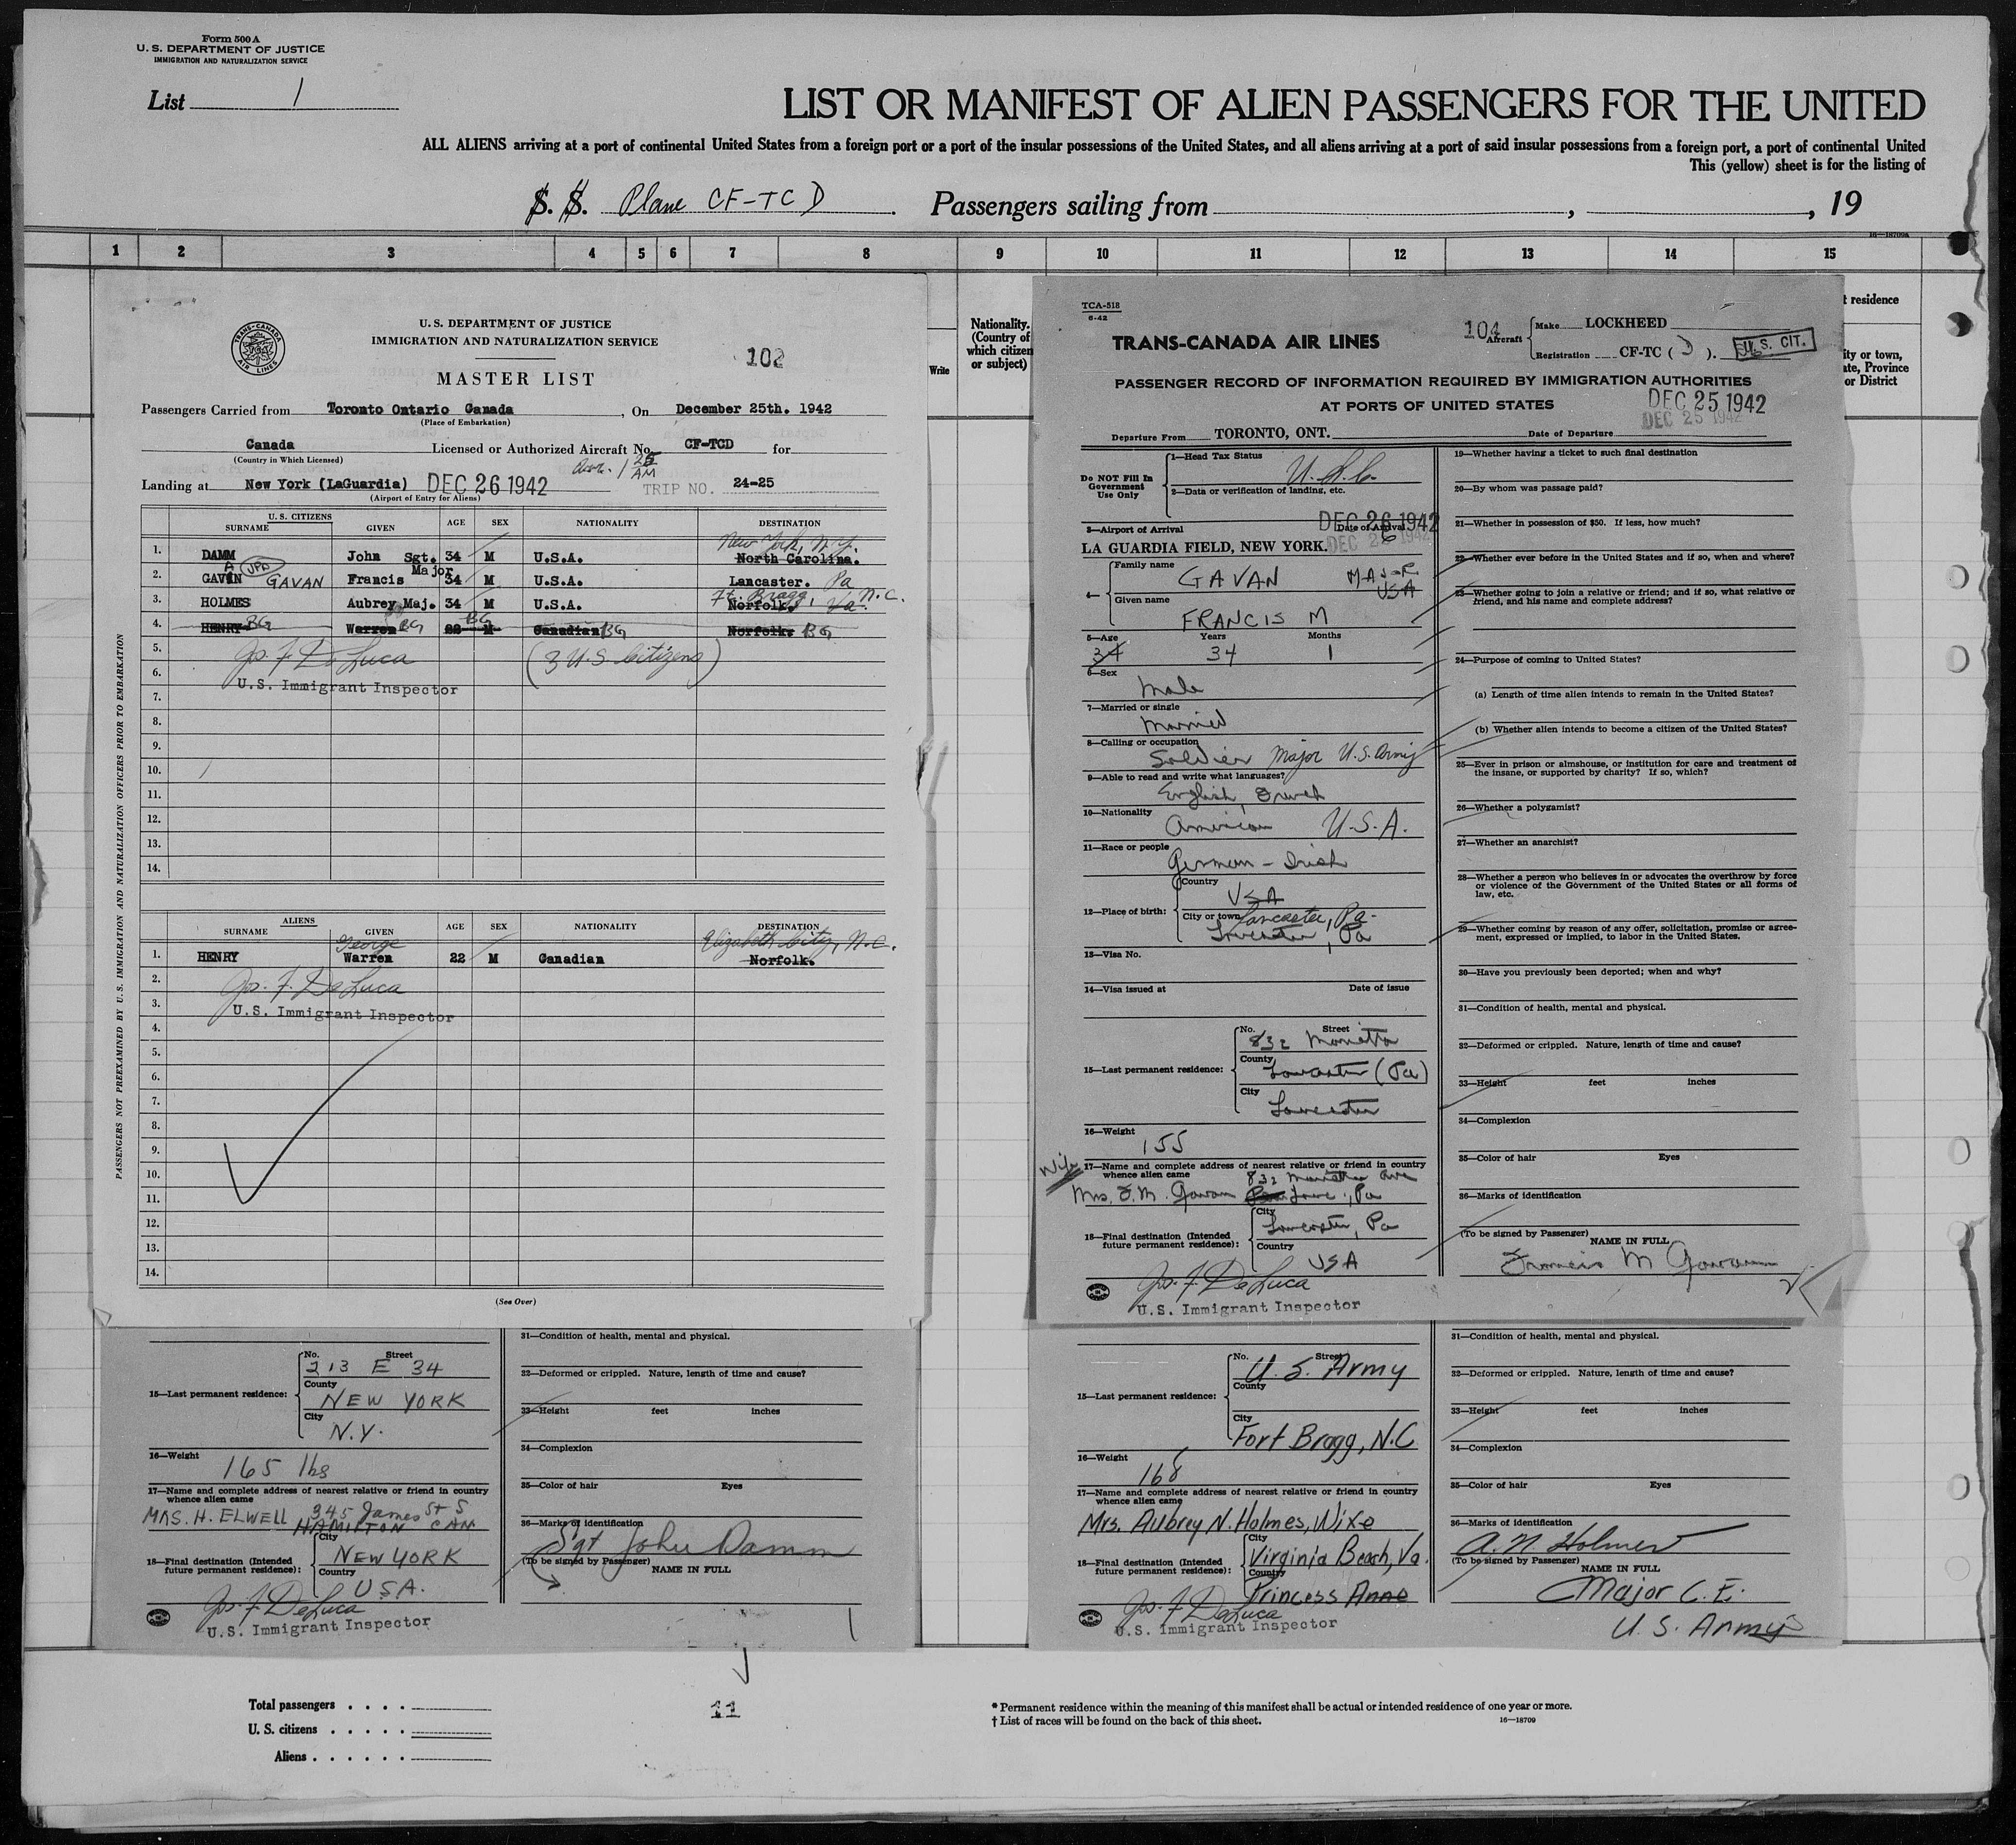 Form 500 A
U. S. DEPARTMENT OF JUSTICE
IMMIGRATION AND NATURALIZATION SERVICE
List 1
LIST OR MANIFEST OF ALIEN PASSENGERS FOR THE UNITED
ALL ALIENS arriving at a port of continental United States from a foreign port or a port of the insular possessions of the United States, and all aliens arriving at a port of said insular possessions from a foreign port, a port of continental United
This (yellow) sheet is for the listing of
S. S. Plane CF-TCD. Passengers sailing from , , 19
16—18709a
1 2 3 4 5 6 7 8 9 10 11 12 13 14 15
Nationality.
(Country of
which citizen
or subject)
Write
t residence
ity or town,
ate, Province
or District
TRANS-CANADA AIR LINES
U. S. DEPARTMENT OF JUSTICE
IMMIGRATION AND NATURALIZATION SERVICE
102
MASTER LIST
Passengers Carried from Toronto Ontario Canada, On December 25th. 1942
(Place of Embarkation)
Canada Licensed or Authorized Aircraft No. CF-TCD for
(Country in Which Licensed)
Arr. 1 25 AM
Landing at New York (LaGuardia) DEC 26 1942 TRIP NO. 24-25
(Airport of Entry for Aliens)
U.S. CITIZENS
SURNAME GIVEN AGE SEX NATIONALITY DESTINATION
New York, N.Y.
1. DAMM John Sgt. 34 M U.S.A. North Carolina.
A JPD Major
2. GAVIN GAVAN Francis 34 M U.S.A. Lancaster. Pa
Ft. Bragg, N.C.
3. HOLMES Aubrey Maj. 34 M U.S.A. Norfolk. Va.
BG
4. HENRY BG Warren BG 22 M Canadian BG Norfolk. BG
5. Jos. F. DeLuca (3 U.S. Citizens)
6. U.S. Immigrant Inspector
7.
8.
9.
10.
11.
12.
13.
14.
ALIENS
SURNAME GIVEN AGE SEX NATIONALITY DESTINATION
George Elizabeth City, N.C.
1. HENRY Warren 22 M Canadian Norfolk.
2. Jos. F. DeLuca
3. U.S. Immigrant Inspector
4.
5.
6.
7.
8.
9.
10.
11.
12.
13.
14.
(See Over)
PASSENGERS NOT PREEXAMINED BY U. S. IMMIGRATION AND NATURALIZATION OFFICERS PRIOR TO EMBARKATION
TCA-518
6-42
TRANS-CANADA AIR LINES
104
Aircraft Make LOCKHEED
Registration CF-TC ( D ).
U.S. CIT.
PASSENGER RECORD OF INFORMATION REQUIRED BY IMMIGRATION AUTHORITIES
AT PORTS OF UNITED STATES
DEC 25 1942
DEC 25 1942
Departure From TORONTO, ONT. Date of Departure
Do NOT Fill In
Government
Use Only
1—Head Tax Status
U.S.C.
2—Data or verification of landing, etc.
DEC 26 1942
3—Airport of Arrival Date of Arrival
LA GUARDIA FIELD, NEW YORK. DEC 26 1942
4—
Family name
GAVAN MAJOR
USA
Given name
FRANCIS M
5—Age Years Months
34 34 1
6—Sex
Male
7—Married or single
Married
8—Calling or occupation
Soldier Major U.S. Army
9—Able to read and write what languages?
English, French
10—Nationality
American U.S.A.
11—Race or people
German - Irish
12—Place of birth:
Country
USA
City or town Lancaster, Pa.
Lancaster, Pa
13—Visa No.
14—Visa issued at Date of issue
15—Last permanent residence:
No. Street
832 Marietta
County
Lancaster (Pa)
City
Lancaster
16—Weight
155
Wife
17—Name and complete address of nearest relative or friend in country
whence alien came 832 Marietta Ave
Mrs. F.M. Gavan Lanc., Pa
18—Final destination (Intended
future permanent residence):
City
Lancaster, Pa
Country
USA
Jos. F. DeLuca
U.S. Immigrant Inspector
19—Whether having a ticket to such final destination
20—By whom was passage paid?
21—Whether in possession of $50. If less, how much?
22—Whether ever before in the United States and if so, when and where?
23—Whether going to join a relative or friend; and if so, what relative or
friend, and his name and complete address?
24—Purpose of coming to United States?
(a) Length of time alien intends to remain in the United States?
(b) Whether alien intends to become a citizen of the United States?
25—Ever in prison or almshouse, or institution for care and treatment of
the insane, or supported by charity? If so, which?
26—Whether a polygamist?
27—Whether an anarchist?
28—Whether a person who believes in or advocates the overthrow by force
or violence of the Government of the United States or all forms of
law, etc.
29—Whether coming by reason of any offer, solicitation, promise or agree-
ment, expressed or implied, to labor in the United States.
30—Have you previously been deported; when and why?
31—Condition of health, mental and physical.
32—Deformed or crippled. Nature, length of time and cause?
33—Height feet inches
34—Complexion
35—Color of hair Eyes
36—Marks of identification
(To be signed by Passenger) NAME IN FULL
Francis M Gavan
2
15—Last permanent residence:
No. Street
213 E 34
County
NEW YORK
City
N.Y.
16—Weight
165 lbs
17—Name and complete address of nearest relative or friend in country
whence alien came
MRS. H. ELWELL 345 James St S
HAMILTON CAN
18—Final destination (Intended
future permanent residence):
City
NEW YORK
Country
USA.
Jos. F. DeLuca
U.S. Immigrant Inspector
31—Condition of health, mental and physical.
32—Deformed or crippled. Nature, length of time and cause?
33—Height feet inches
34—Complexion
35—Color of hair Eyes
36—Marks of identification
Sgt John Damm
(To be signed by Passenger) NAME IN FULL
1
15—Last permanent residence:
No. Street
U. S. Army
County
City
Fort Bragg, N.C
16—Weight
168
17—Name and complete address of nearest relative or friend in country
whence alien came
Mrs. Aubrey N. Holmes, Wife
18—Final destination (Intended
future permanent residence):
City
Virginia Beach, Va.
Country
Princess Anne
Jos. F. DeLuca
U.S. Immigrant Inspector
31—Condition of health, mental and physical.
32—Deformed or crippled. Nature, length of time and cause?
33—Height feet inches
34—Complexion
35—Color of hair Eyes
36—Marks of identification
A. N. Holmes
(To be signed by Passenger) NAME IN FULL
Major C. E.
U. S. Army
Total passengers . . . .
U. S. citizens . . . . .
Aliens . . . . . .
11
* Permanent residence within the meaning of this manifest shall be actual or intended residence of one year or more.
† List of races will be found on the back of this sheet. 16—18709